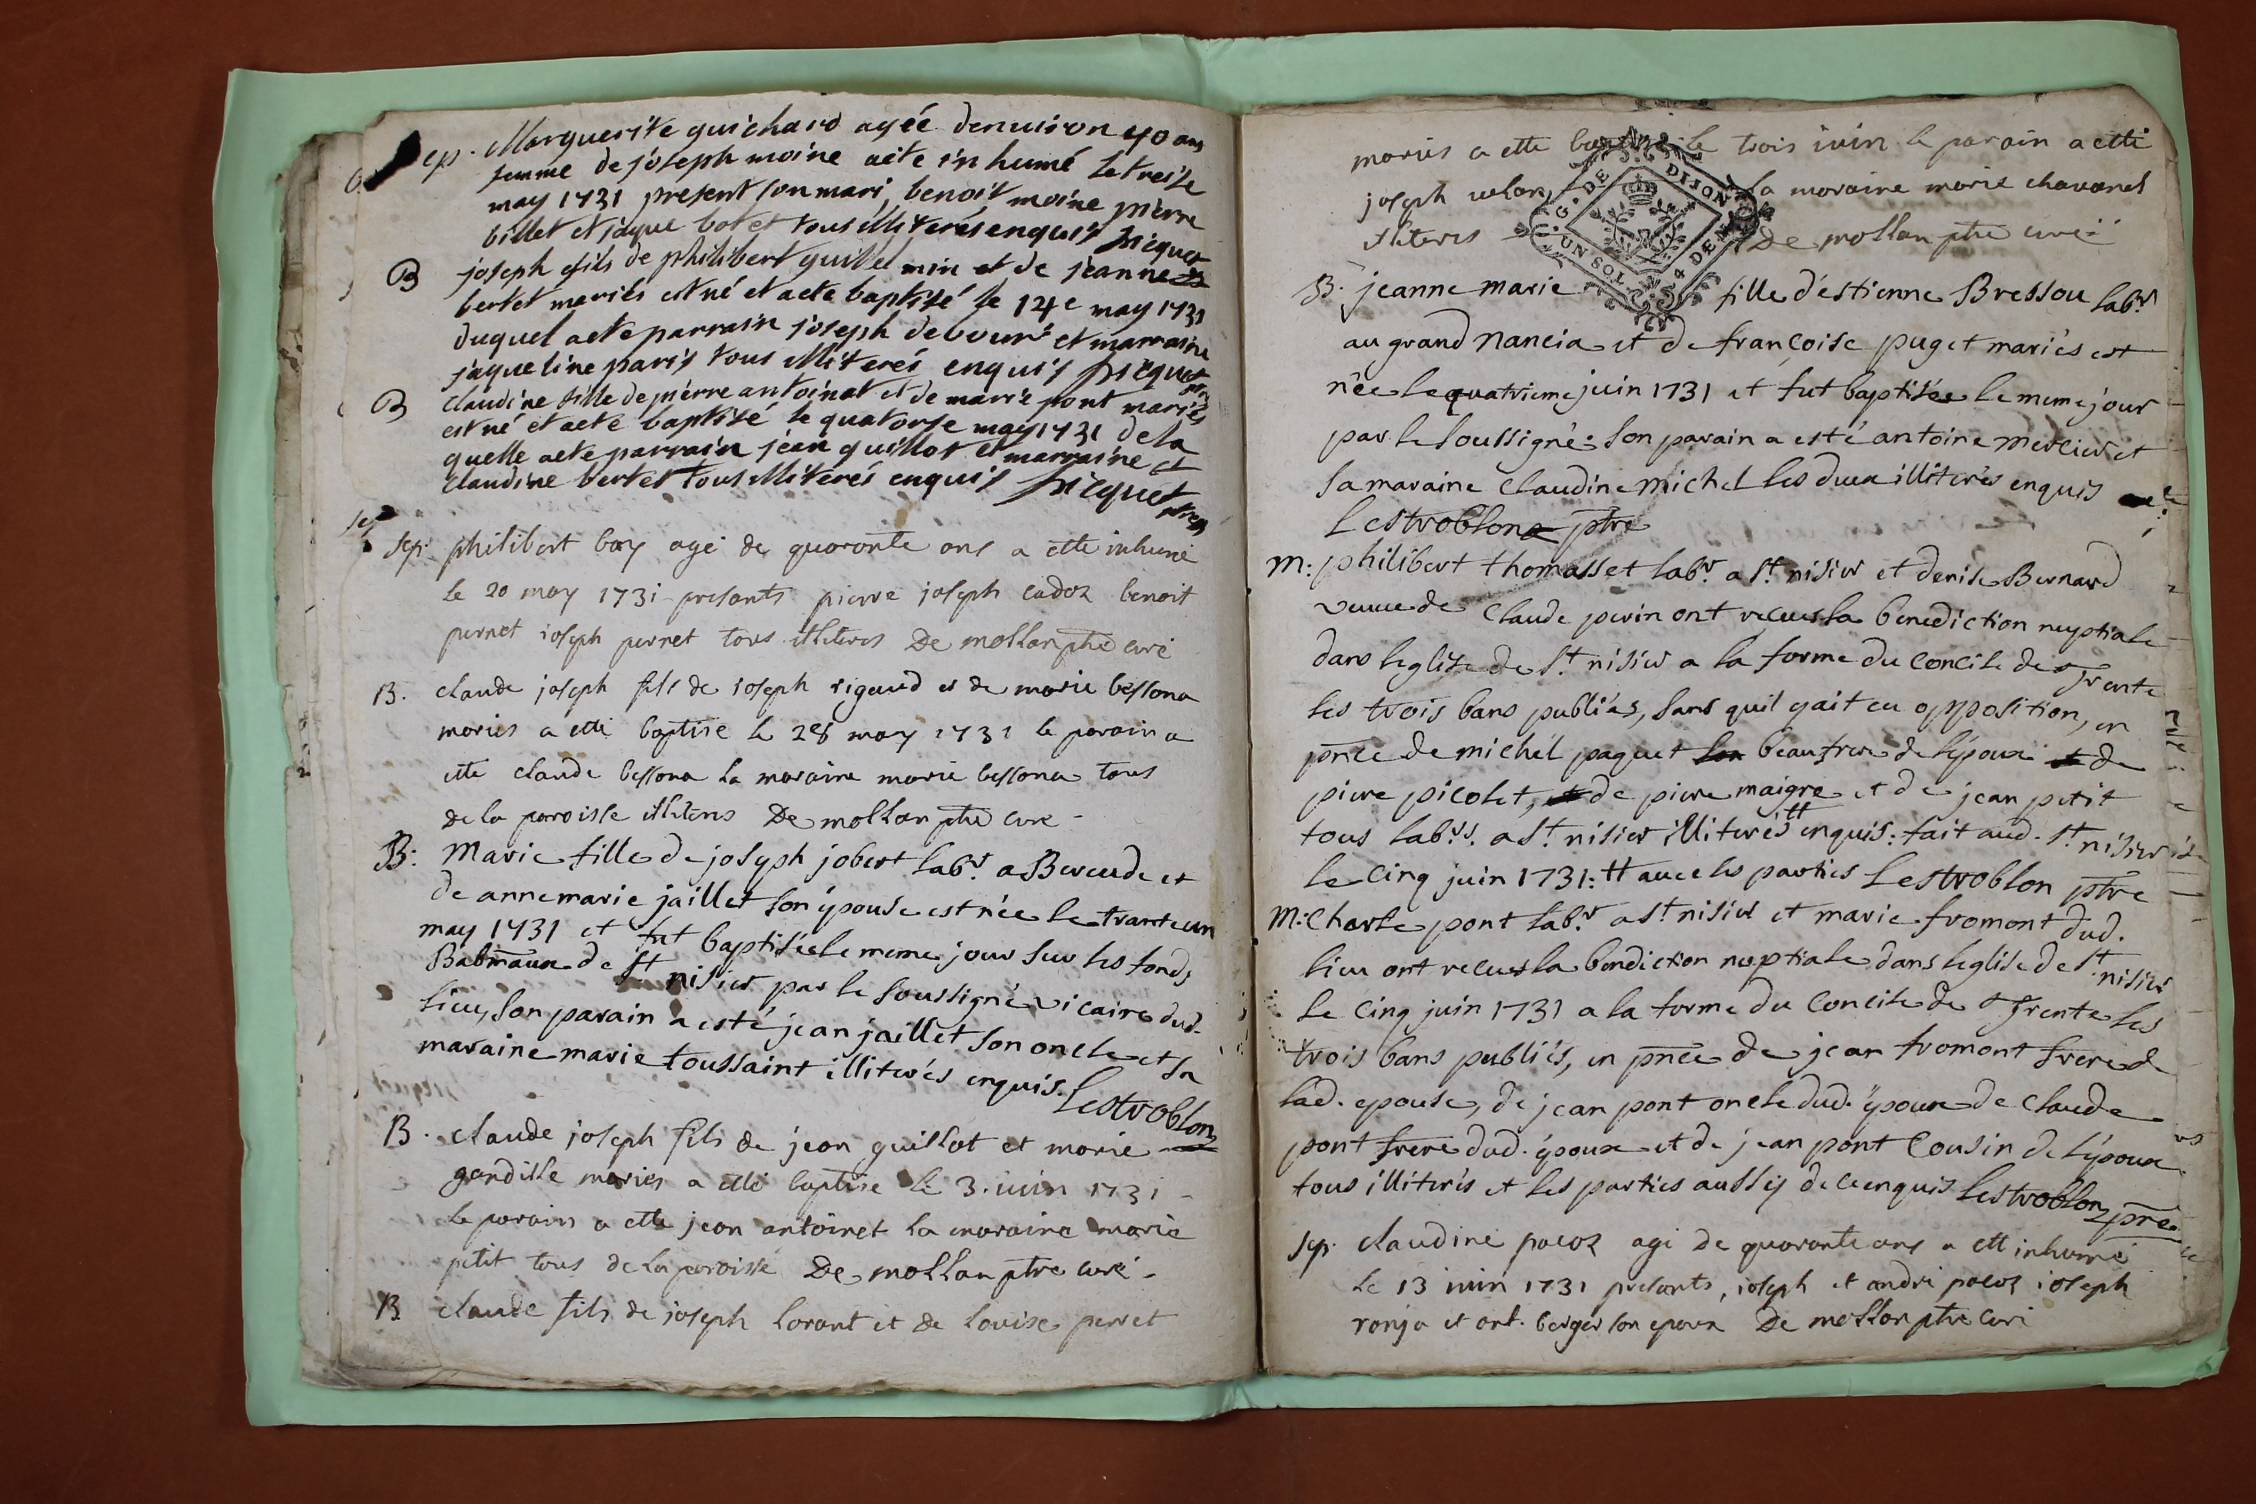 Sep. Marguerite guichard agée denuiron 40 ans
femme de joseph moine aete inhumé le treise
may 1731 present son mari, benoit moine pierre
billet et jaque botet tous illiterés enquis picquet
B joseph fils de philibert guillelmin et de jeanne
bertet mariés est né et aete baptisé le 14e may 1731
duquel aete parrain joseph debourc et marraine
jaqueline paris tous illiterés enquis picquet ptre
B claudine fille de pierre antoinat et de marie pont mariés
est né et aete baptisé le quatorse may 1731 de la
quelle aete parrain jean guillot et marraine
claudine bertet tous illiterés enquis picquet
sep. philibert boy agé de quarante ans a etté inhumé
le 20 may 1731 presants pierre joseph cadoz benoit
pernet ioseph pernet tous illiteres De mollan ptre curé
B. claude joseph fils de ioseph rigaud et de marie bessona
maries a etté baptise le 28 may 1731 le parain a
ette claude bessona la maraine marie bessona tous
de la paroisse illiteres De mollan ptre cure
B: Marie fille de joseph jobert labr. a Bereude et
de anne marie jaillet son épouse est née le trante un
may 1731 et fut baptisée le meme jour sur les fonds
Babmaux de St nisier par le soussigné vicaire dud.
lieu, son parain a esté jean jaillet son oncle et sa
maraine marie toussaint illiterés enquis. Lestroblon
B. claude joseph fils de jean guillot et marie
gandille maries a etté baptise le 3. iuin 1731
le parain a ette jean antoinet la maraine marie
petit tous de la paroisse De mollan ptre curé
B claude fils de joseph lorant et de louise perret
maries a etté baptisé le trois iuin le parain a etté
joseph la maraine marie chavanel
illiteres De mollan ptre curé
G. DE DIJON
UN SOL 4 DEN
B. jeanne marie fille d'estienne Bressou labr
au grand Nancia et de françoise puget mariés est
née le quatrieme juin 1731 et fut baptisée le meme jour
par le soussigné: son parain a esté antoine mercier et
sa maraine claudine michel les deux illiterés enquis
Lestroblon ptre
M: philibert thomasset labr. a St. nisier et denise Bernard
veuue de claude perin ont receus la benediction nuptiale
dans leglise de St. nisier a la forme du Concile de Trente
les trois bans publiés, sans quil y ait eu opposition, en
pnce de michel paquet beaufrere de l'époux de
pierre picolet, de pierre maigre et de jean petit
tous labrs. a St. nisier illiterés tt enquis: fait aud. St. nisier
le Cinq juin 1731: tt auec les parties Lestroblon ptre
M: Charle pont labr. a St nisier et marie fromont dud.
lieu ont receus la bendiction nuptiale dans leglise de St. nisier
le Cinq juin 1731 a la forme du Concile de Trente les
trois bans publiés, en pnce de jean fromont frere de
lad. epouse, de jean pont oncle dud. époux de Claude
pont frere dud. époux et de jean pont Cousin de lépoux
tous illiterés et les parties aussy de ce enquis Lestroblon pre
Sep. claudine pacoz agé de quarante ans a etté inhumé
le 13 iuin 1731 presants, ioseph et andré pacoz ioseph
ronja et ant. berger son epoux De mollan ptre curé